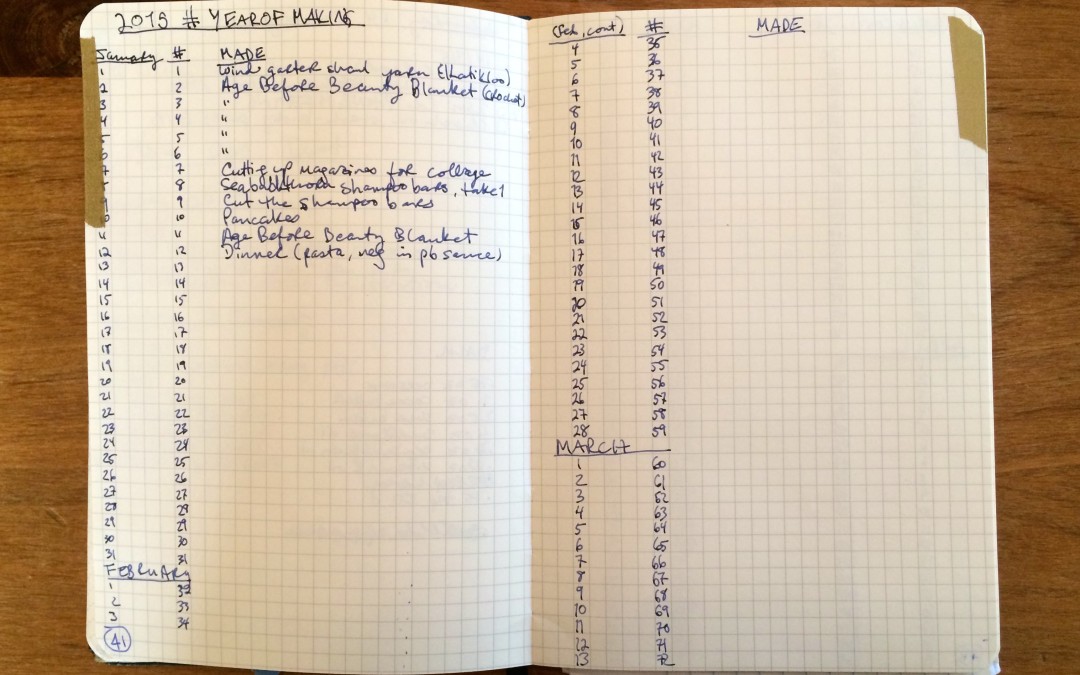 2015 # YEAR OF MAKING
January # MADE
1 1 Wind garter shawl yarn
2 2 Age Before Beauty Blanket (crochet)
3 3 "
4 4 "
5 5 "
6 6 "
7 7 Cutting up magazines for collage
8 8 Seabuckthorn shampoo bars, take 1
9 9 Cut the shampoo bars
10 10 Pancakes
11 11 Age Before Beauty Blanket
12 12 Dinner (pasta, veg in pb sauce)
13 13
14 14
15 15
16 16
17 17
18 18
19 19
20 20
21 21
22 22
23 23
24 24
25 25
26 26
27 27
28 28
29 29
30 30
31 31
FEBRUARY
1 32
2 33
3 34
41
(Feb, cont) # MADE
4 35
5 36
6 37
7 38
8 39
9 40
10 41
11 42
12 43
13 44
14 45
15 46
16 47
17 48
18 49
19 50
20 51
21 52
22 53
23 54
24 55
25 56
26 57
27 58
28 59
MARCH
1 60
2 61
3 62
4 63
5 64
6 65
7 66
8 67
9 68
10 69
11 70
12 71
13 72